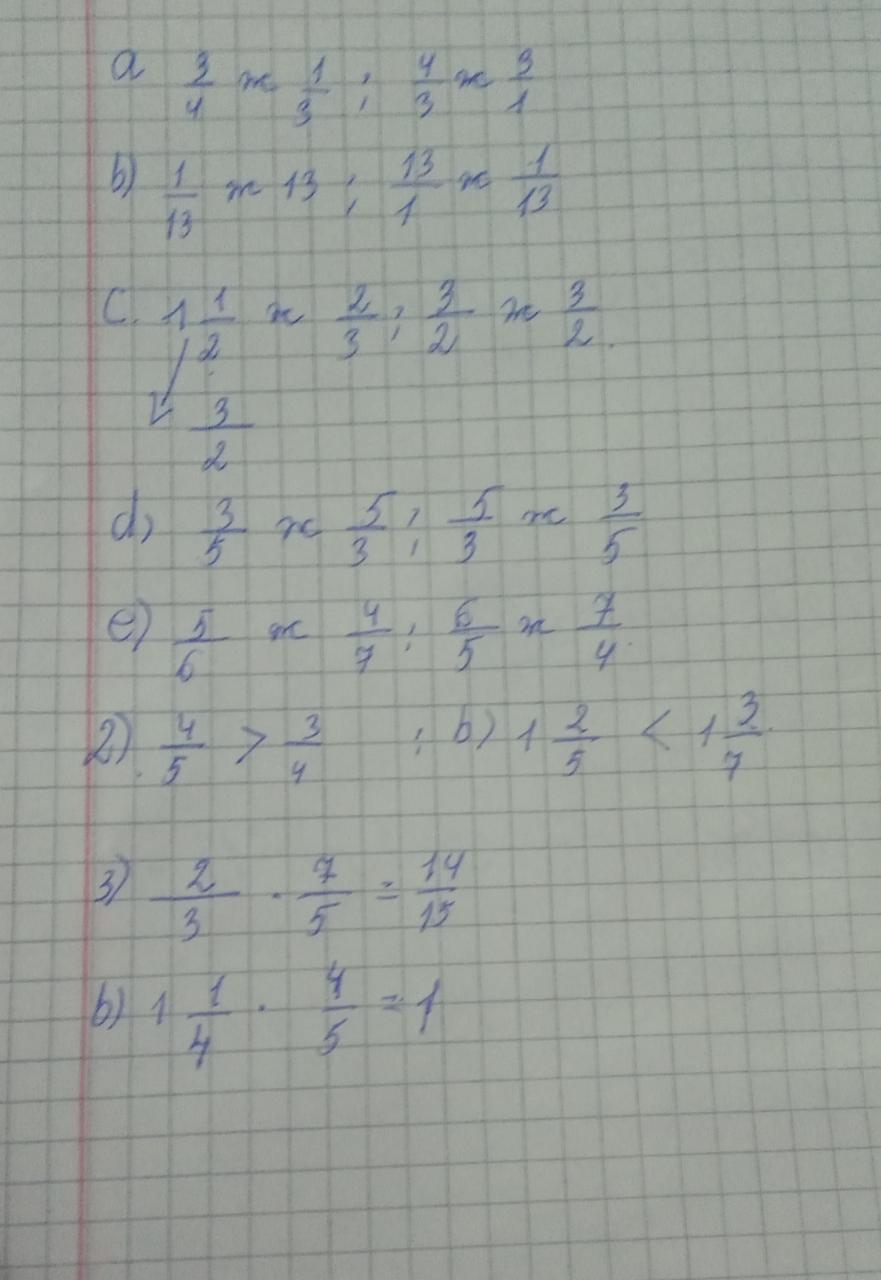 a 3/4 ж 1/3 ; 4/3 ж 3/1
b) 1/13 ж 13 ; 13/1 ж 1/13
c. 1 1/2 ж 2/3 ; 3/2 ж 3/2.
3/2
d) 3/5 ж 5/3 ; 5/3 ж 3/5
e) 5/6 ж 4/7 ; 6/5 ж 7/4
2) 4/5 > 3/4 ; b) 1 2/5 < 1 3/7
3) 2/3 · 7/5 = 14/15
b) 1 1/4 · 4/5 = 1